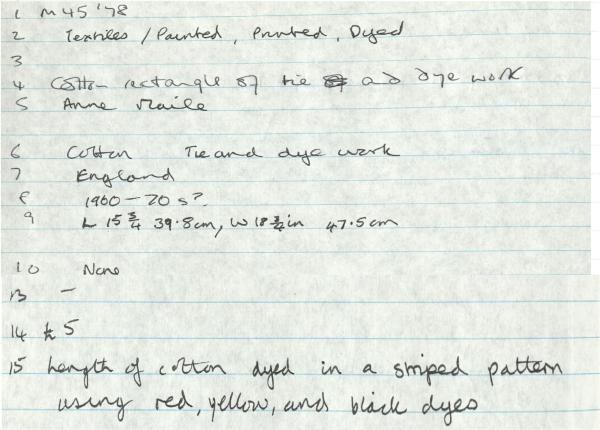 1 M 45 '78
2 Textiles / Painted, Printed, Dyed
3
4 Cotton rectangle of tie and dye work
5 Anne Maile
6 Cotton Tie and dye work
7 England
8 1960 – 70s?
9 L 15 3/4 39.8cm, W 18 3/4 in 47.5cm
10 None
13 –
14 5
15 Length of cotton dyed in a striped pattern
using red, yellow, and black dyes